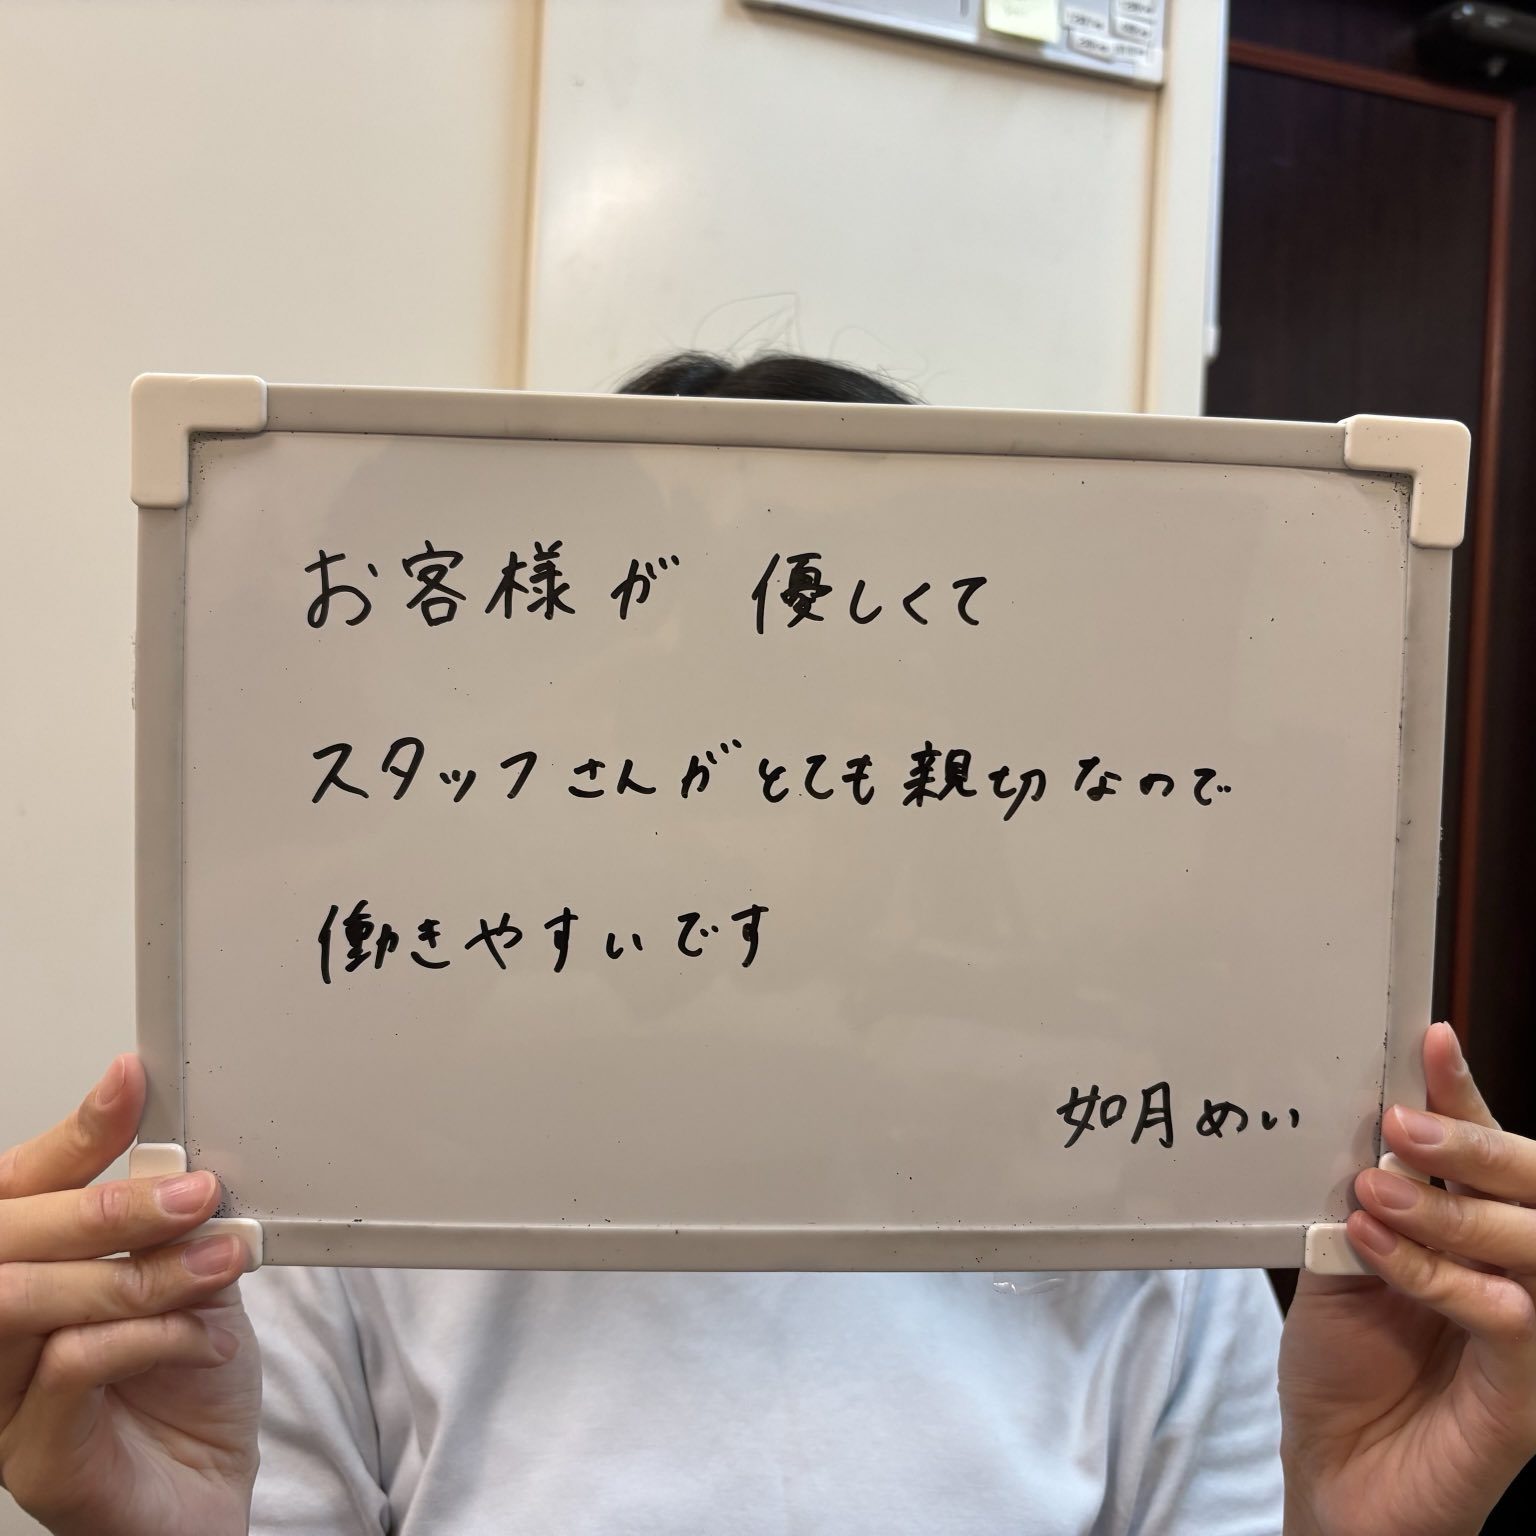 お客様が 優しくて
スタッフさんがとても親切なので
働きやすいです
如月めい